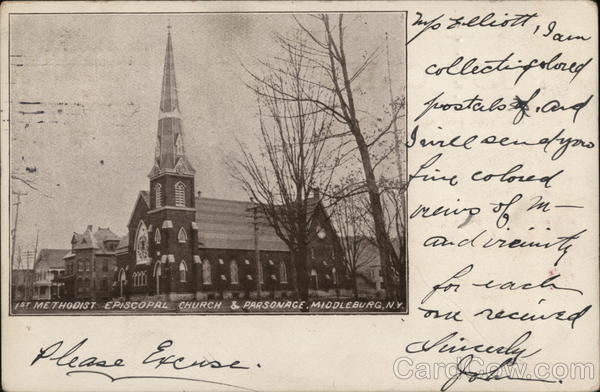 1ST METHODIST EPISCOPAL CHURCH & PARSONAGE, MIDDLEBURG, N.Y.
Mrs Elliott, I am
collecting colored
postals, and
I will send you
fine colored
views of M—
and vicinity
for each
one received
Sincerely
John
Please Excuse.
CardCow.com